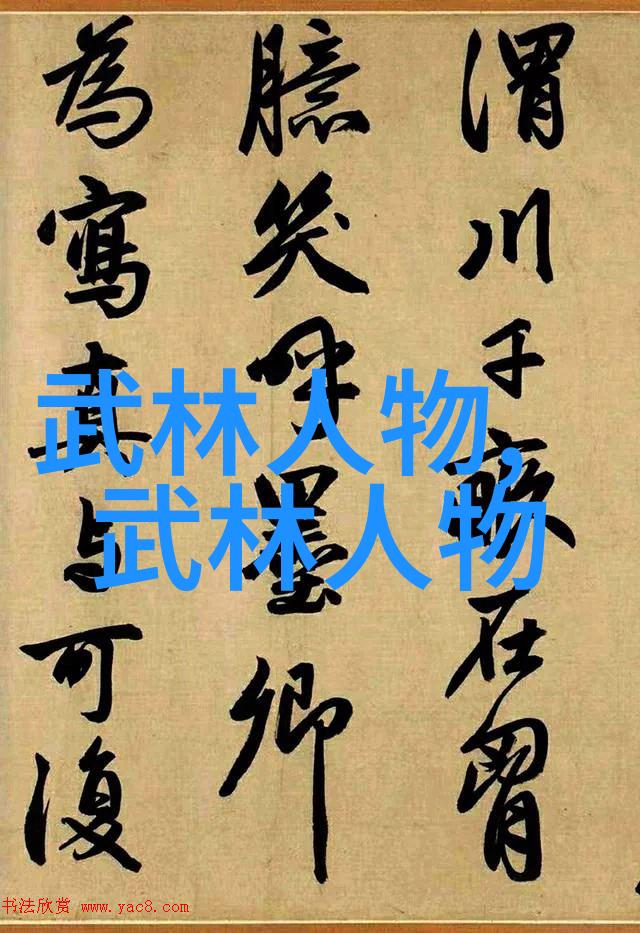 渭川千畝在胷
臆笑呼墨卿
為寫真与可復
武林人物,
武林人物
书法欣赏 www.yac8.com